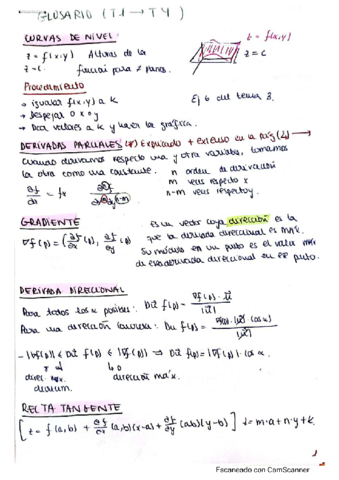 GLOSARIO (T.1 → T4)
CURVAS DE NIVEL:
z = f(x,y)
z = f(x,y) Alturas de la
z = c
z = c. función para z planos.
Procedimiento
→ igualar f(x,y) a k
Ej 6 del tema 3.
→ Despejar o x o y
→ Dar valores a k y hacer la gráfica.
DERIVADAS PARCIALES (*) Explicado + extenso en la pág (2) →
Cuando derivamos respecto una y otra variable, tomamos
la otra como una constante. n orden de derivación
m veces respecto x
n-m veces respecto y.
GRADIENTE
Es un vector cuya dirección es la
que la derivada direccional es máx.
∇f(p) = (∂f/∂x (p), ∂f/∂y (p)
Su módulo en un punto es el valor máx
de esa derivada direccional en ese punto.
DERIVADA DIRECCIONAL
Para todos los α posibles: Dū f(p) = ∇f(p) · ū / |ū|
Para una dirección concreta: Du f(p) =
- |∇f(p)| ≤ Dū f(p) ≤ |∇f(p)| ⇒ Dū f(p) = |∇f(p)| · cos α.
direc
dirección máx.
RECTA TANGENTE
[z = f(a,b) + ∂f/∂x (a,b)(x-a) + ∂f/∂y (a,b)(y-b)] z = m·a + n·y + k.
Escaneado con CamScanner